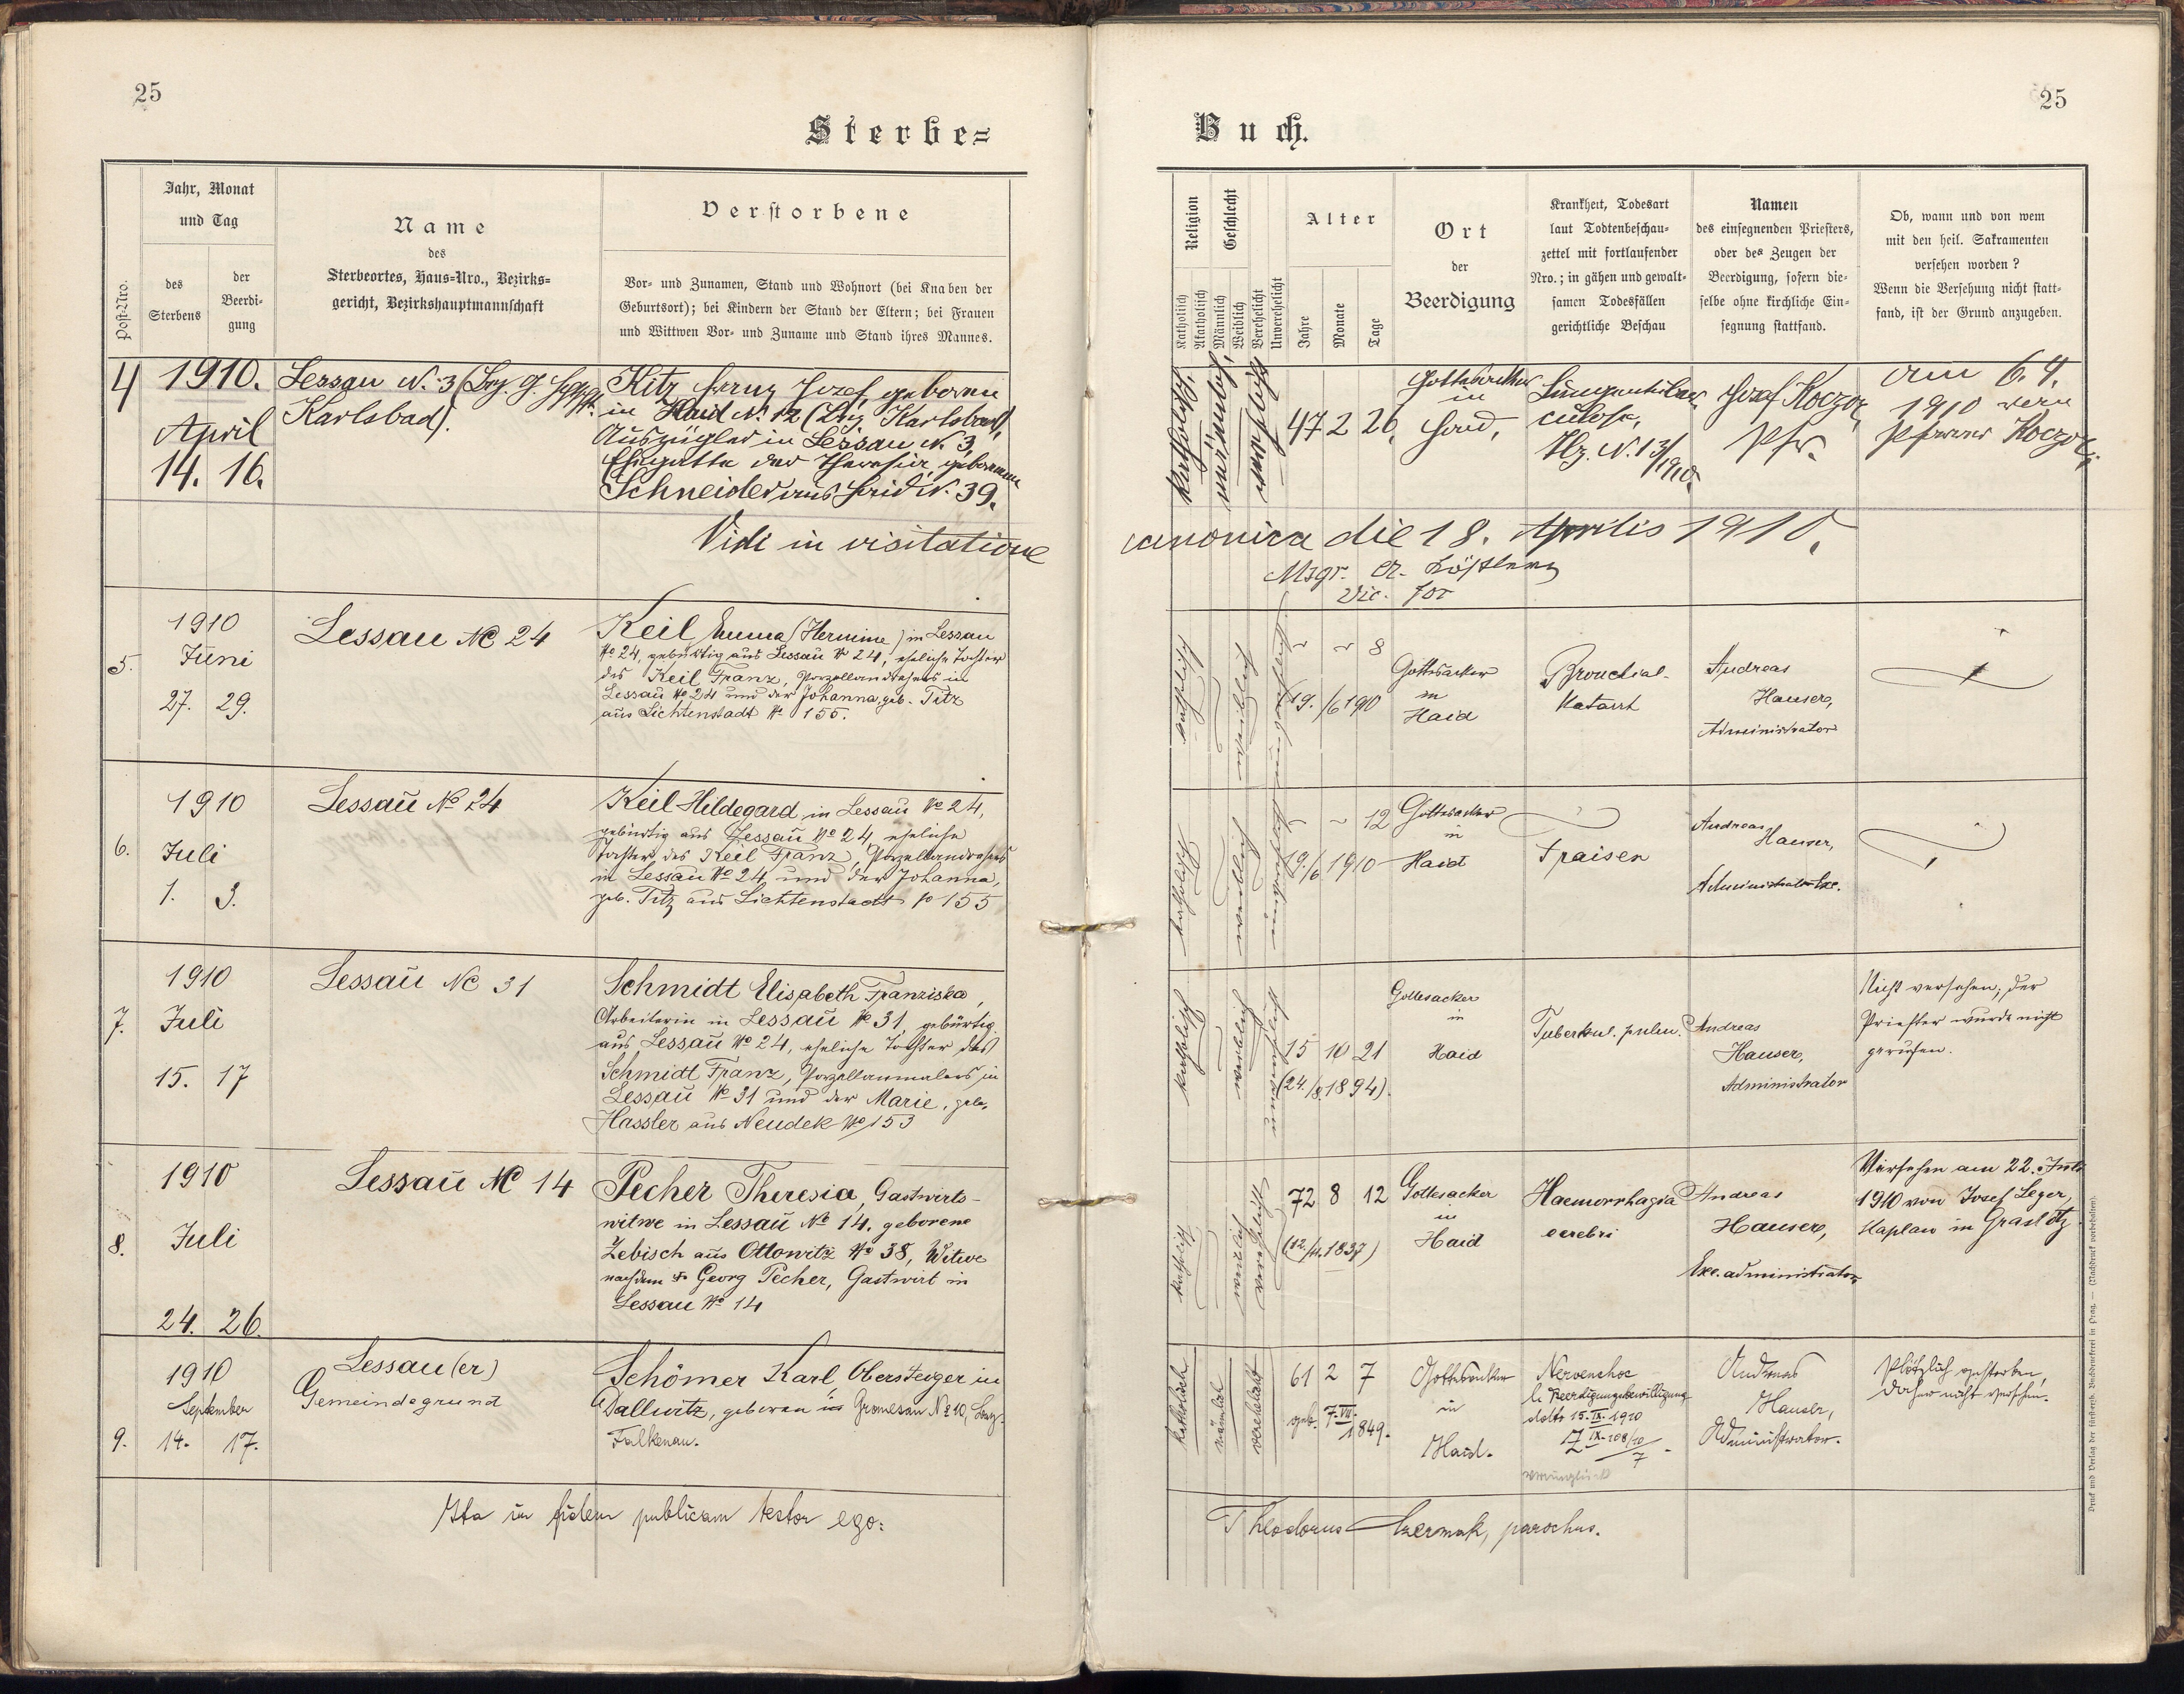 25
Sterbe=
Jahr, Monat
und Tag
Post-Nro.
des
Sterbens
der
Beerdi-
gung
Name
des
Sterbeortes, Haus=Nro., Bezirks=
gericht, Bezirkshauptmannschaft
Verstorbene
Vor- und Zunamen, Stand und Wohnort (bei Knaben der
Geburtsort); bei Kindern der Stand der Eltern; bei Frauen
und Wittwen Vor- und Zuname und Stand ihres Mannes.
4
1910.
April
14. 16.
Lessau N. 3 (Bez. G.
Karlsbad).
Kitz Franz Josef geboren
in Haid N. 12 (Bez. Karlsbad),
Auszügler in Lessau N. 3,
Ehegatte der Theresia geborenen
Schneider aus Haid N. 39.
Vidi in visitatione
5.
1910
Juni
27. 29.
Lessau No 24
Keil Emma (Hermine) in Lessau
No 24, gebürtig aus Lessau No 24, eheliche Tochter
des Keil Franz, Porzellandrehers in
Lessau No 24 und der Johanna, geb. Titz
aus Lichtenstadt No 155.
6.
1910
Juli
1. 3.
Lessau No 24
Keil Hildegard in Lessau No 24,
gebürtig aus Lessau No 24, eheliche
Tochter des Keil Franz, Porzellandrehers
in Lessau No 24 und der Johanna,
geb. Titz aus Lichtenstadt No 155
7.
1910
Juli
15. 17
Lessau No 31
Schmidt Elisabeth Franziska,
Arbeiterin in Lessau No 31, gebürtig
aus Lessau No 24, eheliche Tochter des
Schmidt Franz, Porzellanmalers in
Lessau No 31 und der Marie, geb.
Hassler aus Neudek No 153
8.
1910
Juli
24. 26.
Lessau No 14
Pecher Theresia, Gastwirts-
witwe in Lessau No 14, geborene
Zebisch aus Ottowitz No 38, Witwe
nach dem † Georg Pecher, Gastwirt in
Lessau No 14
9.
1910
September
14. 17.
Lessau(er)
Gemeindegrund
Schömer Karl, Obersteiger in
Dallwitz, geboren in Gromesau No 10, Bez.
Falkenau.
Ita in fidem publicam testor ego:
25
Buch.
Religion
Katholisch
Akatholisch
Geschlecht
Männlich
Weiblich
Verehelicht
Unverehelicht
Alter
Jahre
Monate
Tage
Ort
der
Beerdigung
Krankheit, Todesart
laut Todtenbeschau-
zettel mit fortlaufender
Nro.; in gähen und gewalt-
samen Todesfällen
gerichtliche Beschau
Namen
des einsegnenden Priesters,
oder des Zeugen der
Beerdigung, sofern die-
selbe ohne kirchliche Ein-
segnung stattfand.
Ob, wann und von wem
mit den heil. Sakramenten
versehen worden?
Wenn die Versehung nicht statt-
fand, ist der Grund anzugeben.
katholisch,
männlich,
verehelicht
47 2 26.
Gottesacker
in
Haid,
Lungentuber-
culose,
N. 13/1910.
Josef Koczor,
Pfr.
am 6. 4.
1910 vom
Pfarrer Koczor.
canonica die 18. Aprilis 1910.
Msgr.
Vic. for
katholisch
weiblich
unverehelicht
~ ~ 8
19./6 1910
Gottesacker
in
Haid
Bronchial-
Katarrh
Andreas
Hauser,
Administrator
katholisch
weiblich
unverehelicht
~ ~ 12
19./6 1910
Gottesacker
in
Haid
Fraisen
Andreas
Hauser,
Administrator Exc.
katholisch
weiblich
unverehelicht
15 10 21
(24./8. 1894).
Gottesacker
in
Haid
Tuberkul. pulm.
Andreas
Hauser,
Administrator
Nicht versehen; der
Priester wurde nicht
gerufen.
katholisch
weiblich
verehelicht
72 8 12
(12./11. 1837)
Gottesacker
in
Haid
Haemorrhagia
cerebri
Andreas
Hauser,
Exc. administrator
Versehen am 22. Juli
1910 von Josef Leger,
Kaplan in Graslitz
katholisch
männlich
verehelicht
61 2 7
geb. 7. VII. 1849.
Gottesacker
in
Haid.
Nervenchoc
l. Beerdigungsbewilligung
ddto 15. IX. 1910
Z IX. 108/10
7
verunglückt
Andreas
Hauser,
Administrator.
Plötzlich gestorben,
daher nicht versehen.
Theodorus Czermak, parochus.
Druck und Verlag der fürsterzb. Buchdruckerei in Prag. — (Nachdruck vorbehalten).